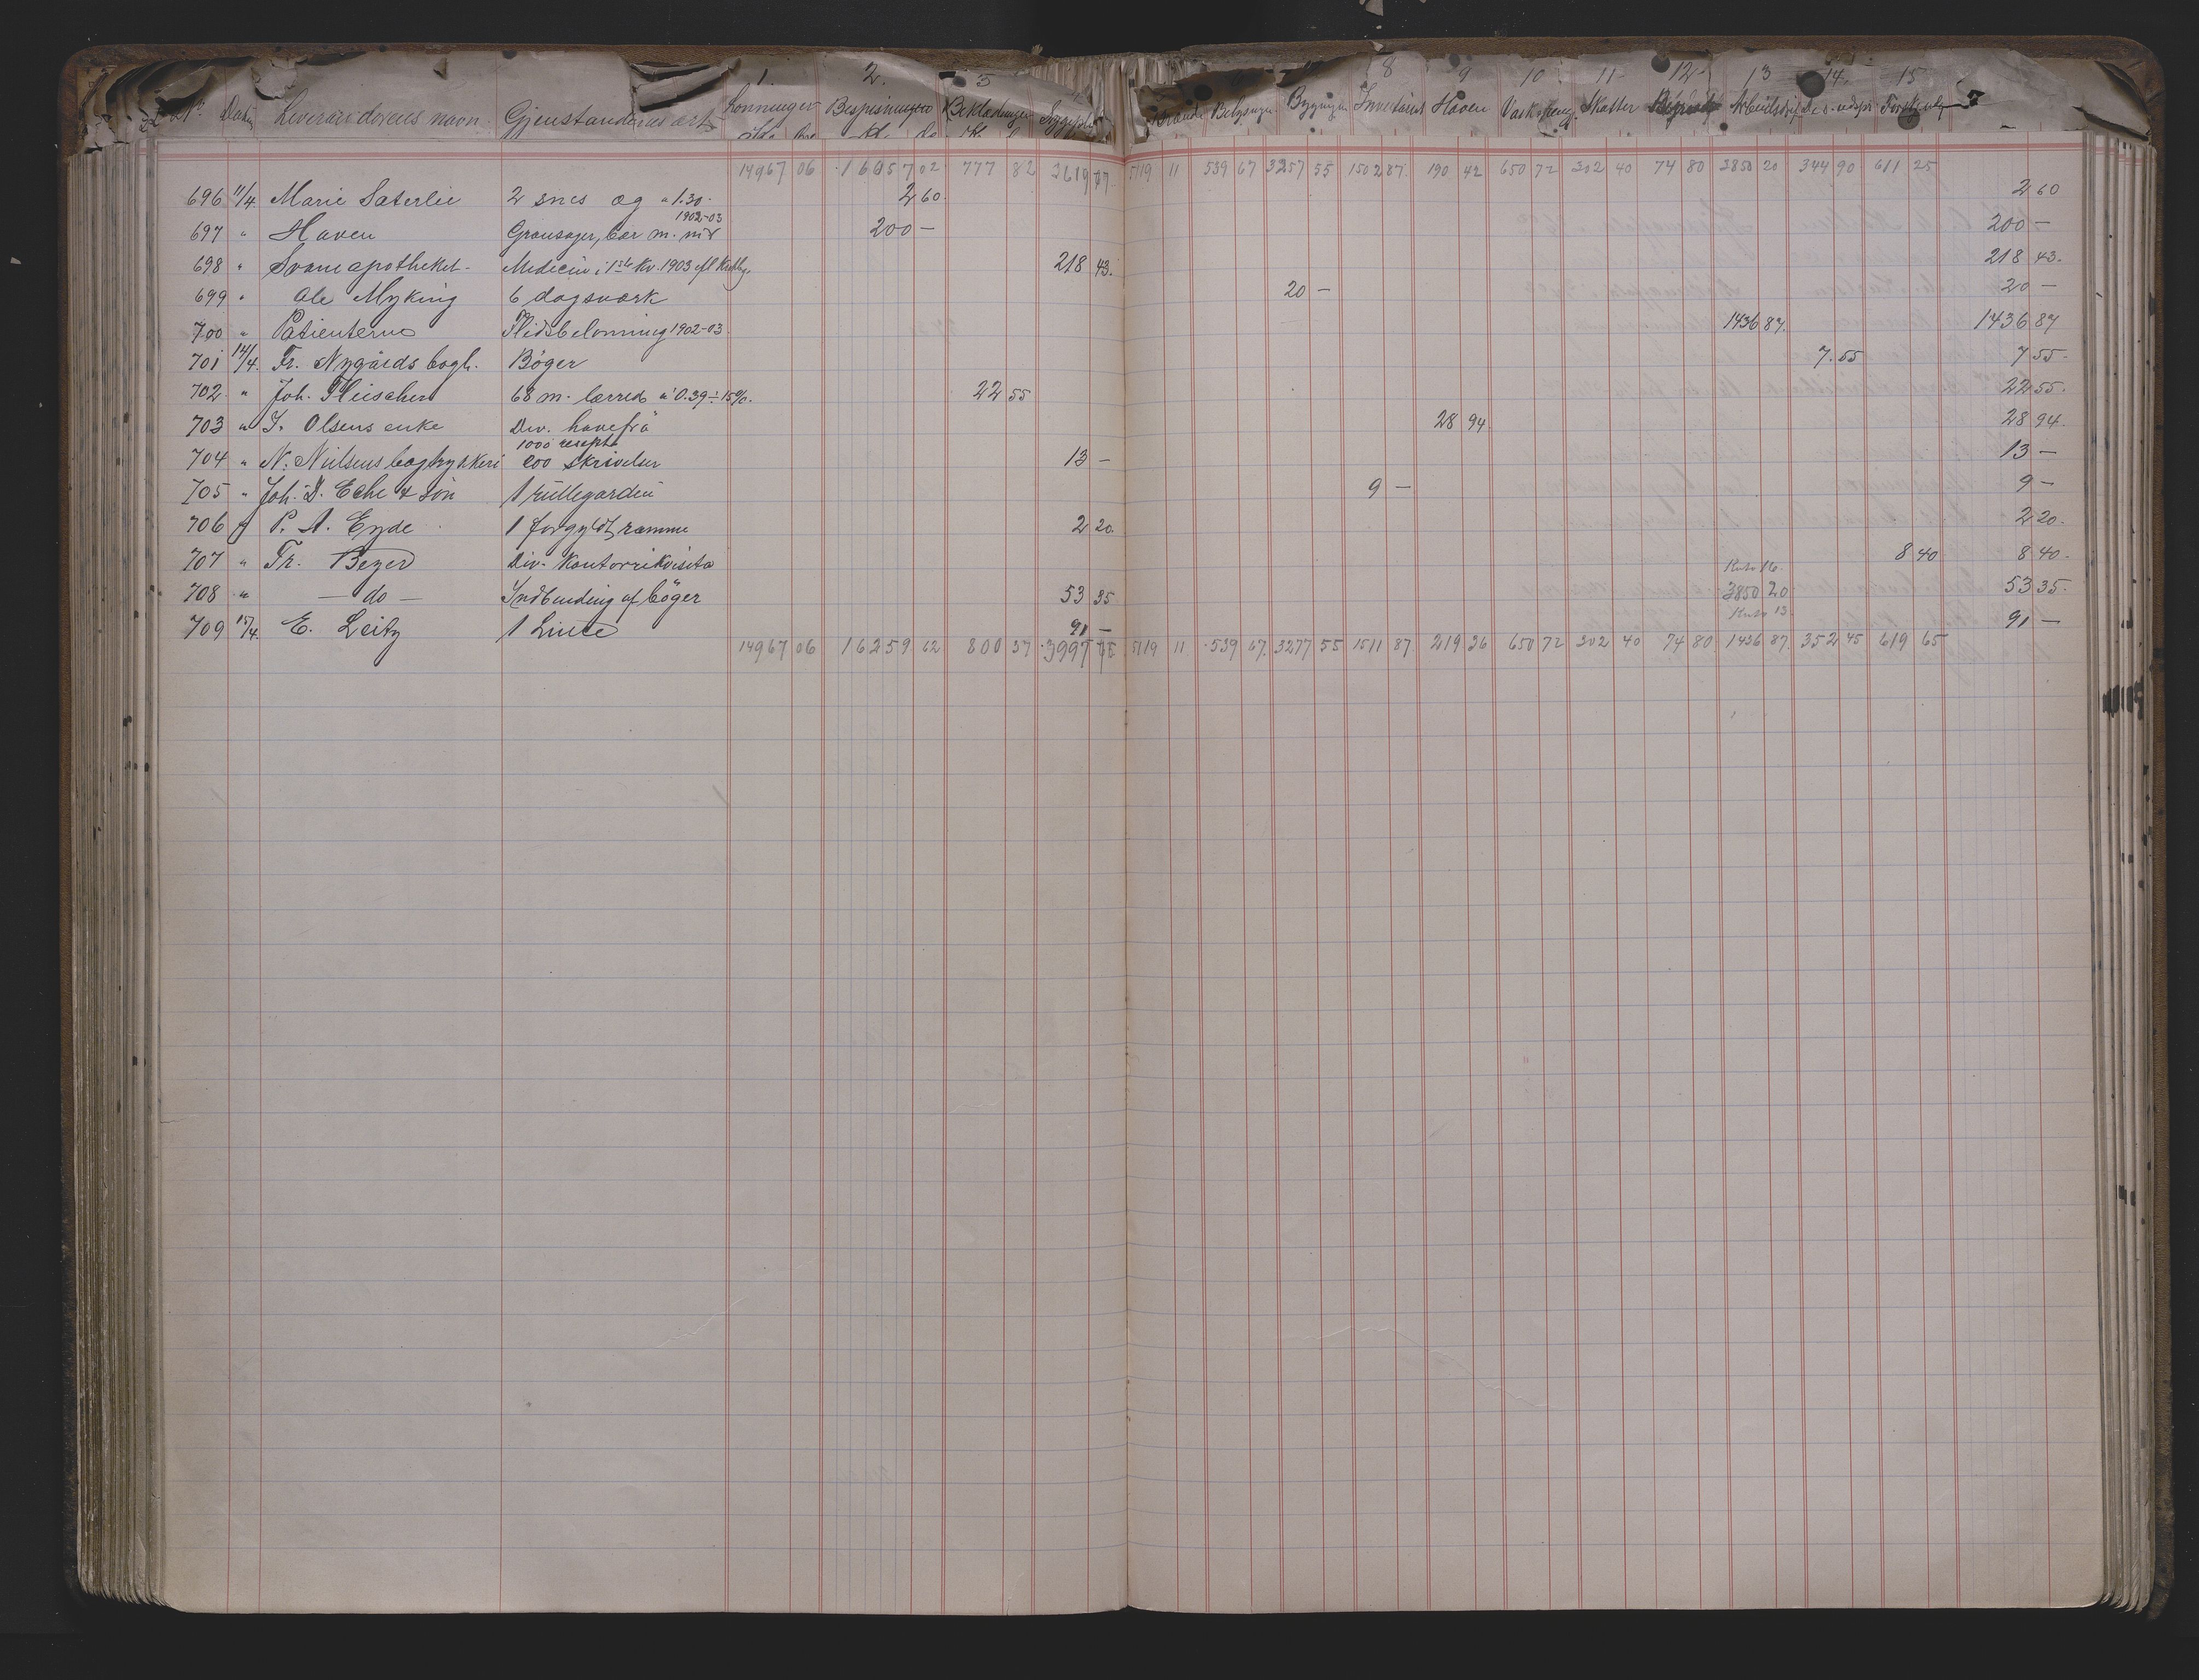 1. 2. 3 8 9 10 11 12 13 14. 15
No Datum Leverandörens navn. Gjenstandenes art Lönninger Bespisningen Beklædningen Sygeple Brænde Belysning Bygninger Inventariet Haven Vask Skatter Arbeidsdrif
14967 06 16057 02 777 82 3619 77 5119 11 539 67 3257 55 1502 87 190 42 650 72 302 40 74 80 3850 20 344 90 611 25
696 11/4 Marie Sæterlie 2 snes æg a 1.30 2 60 2 60
697 " Haven Grönsager, bær m. m. 1902-03 200 — 200 —
698 " Svaneapotheket Medicin i 1ste Kv. 1903 218 43. 218 43.
699 " Ole Myking 6 dagsværk 20 — 20 —
700 " Patienterne Flidsbelönning 1902-03. 1436 87. 1436 87
701 14/4. Fr. Nygårds bogh. Böger 7.55 7 55
702 " Joh. Fleischer 68 m. lærred a 0.39 ÷ 15%. 22 55 22 55.
703 " J. Olsens enke Div. havefrö 28 94 28 94.
704 " N. Nilsens bogtrykkeri 1000 resepter 200 skrivelser 13 — 13 —
705 " Joh. D. Behr & sön 1 rullegardin 9 — 9 —
706 " P. A. Eyde 1 forgyldt ramme 2 20. 2 20.
707 " Fr. Beyer Div. kontorrikvisita 8 40 8 40
Konto 16.
708 " — do — Indbinding af böger 53 35 3850 20 53 35.
Konto 13
709 15/4. E. Leitz 1 Linse 91 — 91 —
14967 06 16259 62 800 37 3997 75 5119 11 539 67. 3277 55 1511 87. 219 36 650 72 302 40 74 80 1436 87. 352 45 619 65